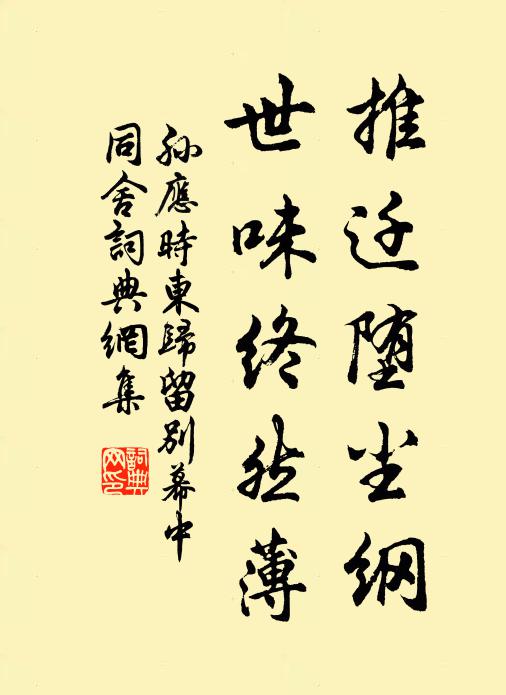 推迁堕尘纲
世味终然薄
孙應時東歸留别幕中
同舍詞典網集
詞典
网印